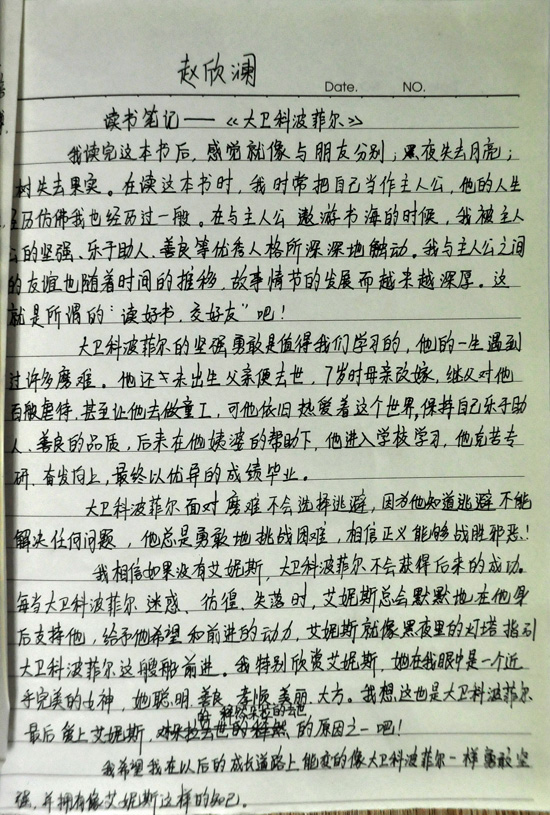 赵欣澜
Date. NO.
读书笔记——《大卫科波菲尔》
我读完这本书后，感觉就像与朋友分别；黑夜失去月亮；
树失去果实。在读这本书时，我时常把自己当作主人公，他的人生
经历仿佛我也经历过一般。在与主人公遨游书海的时候，我被主人
公的坚强、乐于助人、善良等优秀人格所深深地触动。我与主人公之间
的友谊也随着时间的推移，故事情节的发展而越来越深厚。这
就是所谓的"读好书，交好友"吧！
大卫科波菲尔的坚强勇敢是值得我们学习的，他的一生遇到
过许多磨难。他还未出生父亲便去世，7岁时母亲改嫁，继父对他
百般虐待，甚至让他去做童工，可他依旧热爱着这个世界，保持自己乐于助
人、善良的品质，后来在他姨婆的帮助下，他进入学校学习，他刻苦专
研、奋发向上，最终以优异的成绩毕业。
大卫科波菲尔面对磨难不会选择逃避，因为他知道逃避不能
解决任何问题，他总是勇敢地挑战困难，相信正义能够战胜邪恶！
我相信如果没有艾妮斯，大卫科波菲尔不会获得后来的成功。
每当大卫科波菲尔迷惑、彷徨、失落时，艾妮斯总会默默地在他身
后支持他，给予他希望和前进的动力，艾妮斯就像黑夜里的灯塔指引
大卫科波菲尔这艘船前进。我特别欣赏艾妮斯，她在我眼中是一个近
乎完美的女神，她聪明、善良、孝顺、美丽、大方。我想这也是大卫科波菲尔
最后爱上艾妮斯，的原因之一吧！
我希望我在以后的成长道路上能变的像大卫科波菲尔一样勇敢坚
强，并拥有像艾妮斯这样的知己。